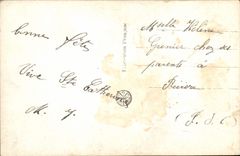 bonne fête
Vive Ste Catherine
M. J.
Mselle Hélène
Grenier chez ses
parents à
Rivière
P. d. C.